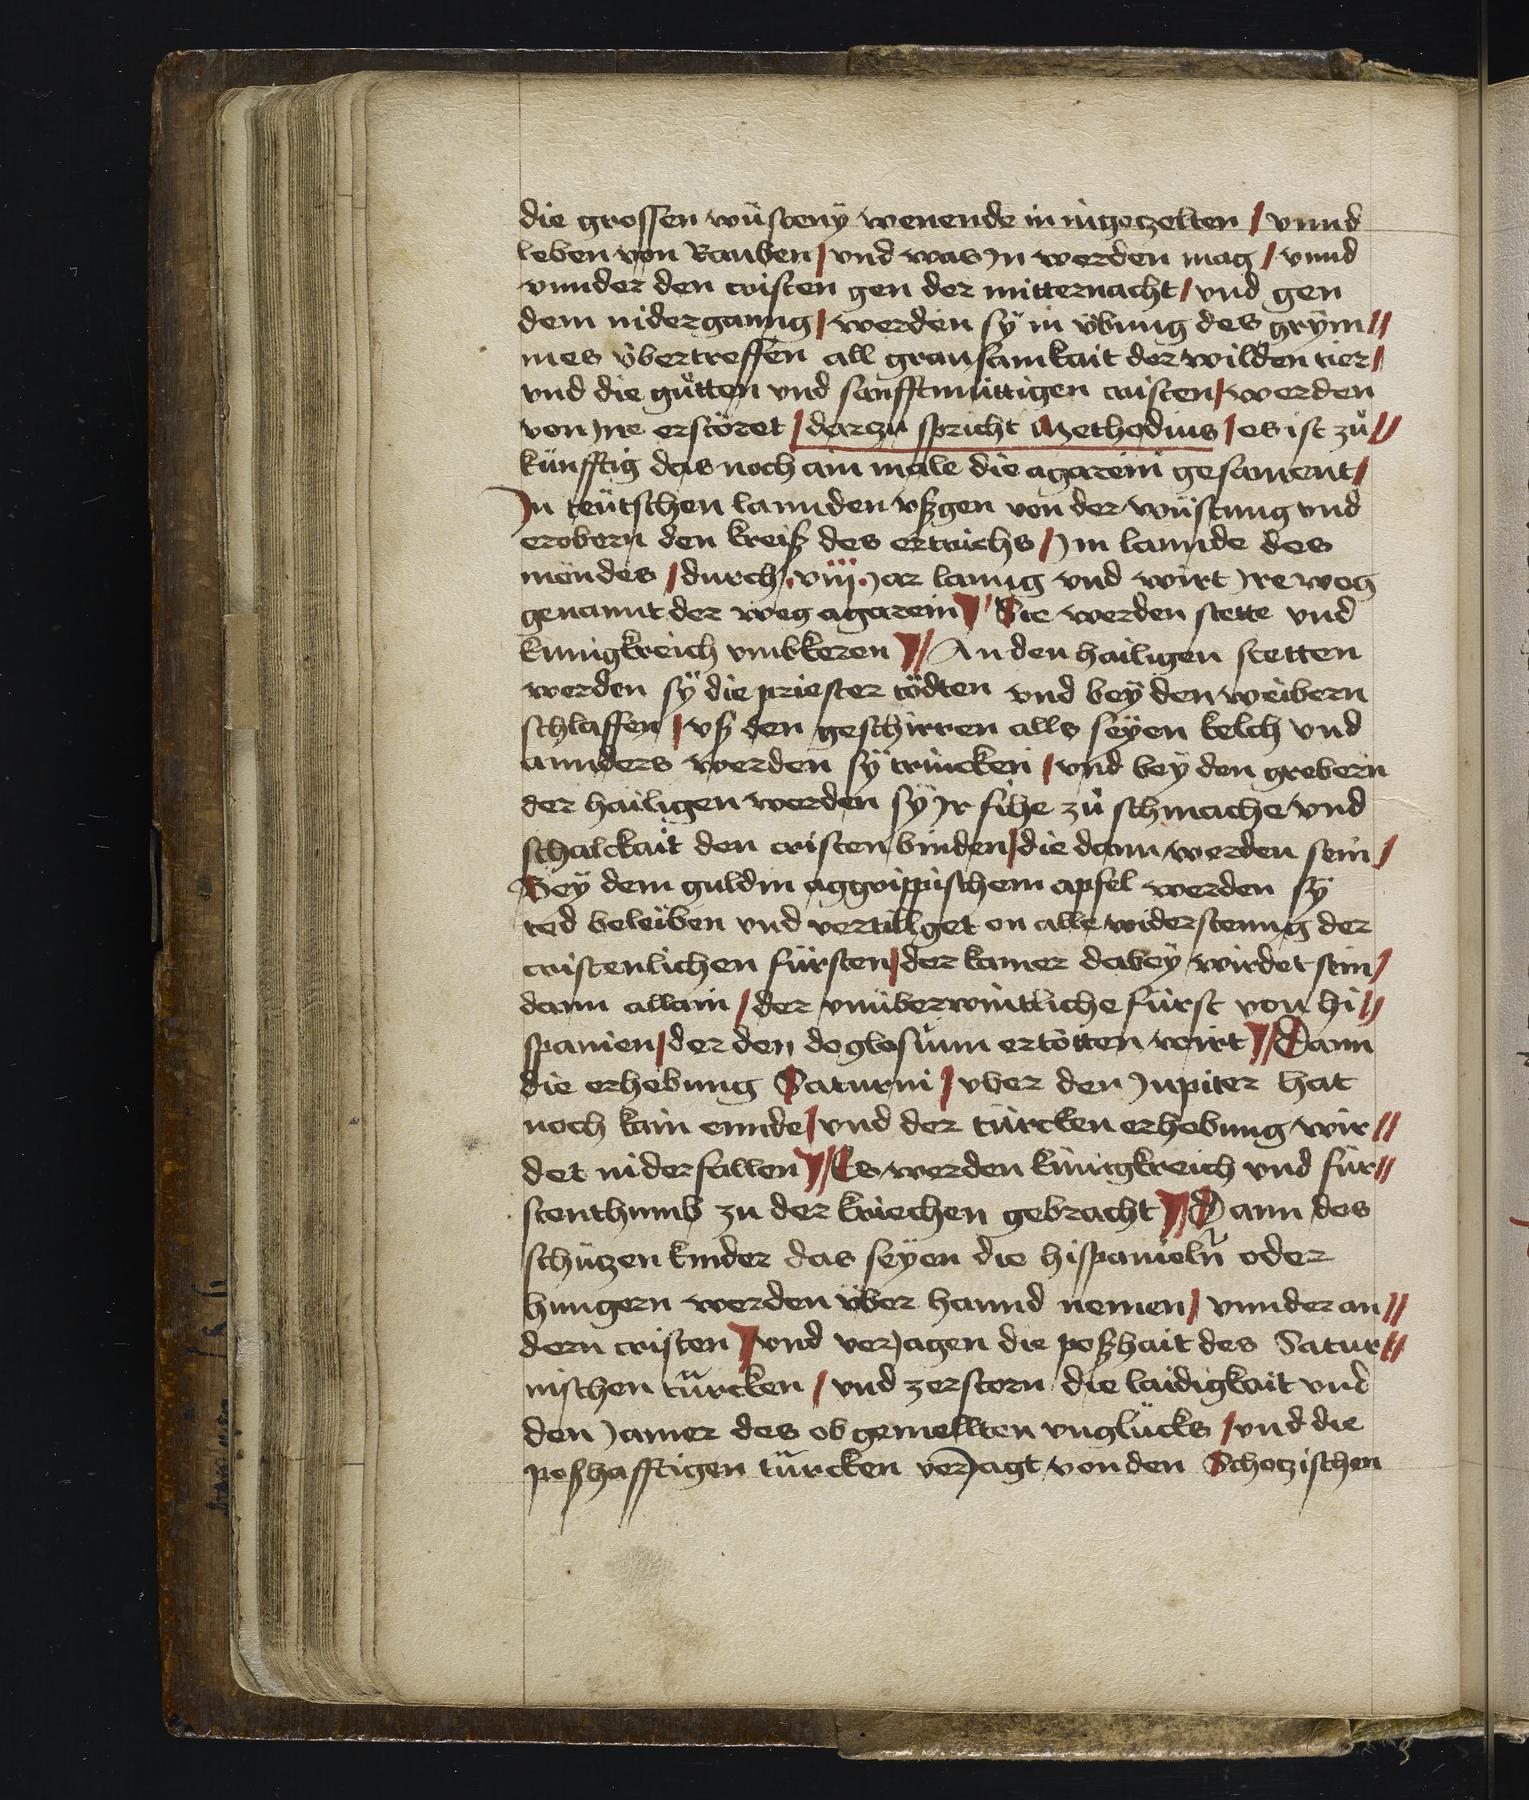 die grossen wüsteny wenende in irigezelten / vnnd
leben von Rauben / vnd was jn werden mag / vnnd
vnnder den cristen gen der mitternacht / vnd gen
dem niderganng / werden sÿ in v̈bung des grÿm//
mes v̈bertreffen all grausamkait der wilden tier /
vnd die gůtten vnd sanfftmüttigen cristen / werden
von jne erstöret / darzu spricht Methodius / es ist zů//
künfftig das noch ain male die agareni gesament /
Jn teütschen lannden vßgen von der wüstung vnd
erobern den kreiß des ertrichs / jm lannde des
mondes / durch .viij. jar lanng vnd wirt jre weg
genannt der weg agareni // Die werden stette vnd
künigkreich vmbkeren // An den hailigen stetten
werden sÿ die priester tödten vnd beÿ den weibern
schlaffen / vß den geschirren alls seÿen kelch vnd
annders werden sÿ trincken / vnd beÿ den grebern
der hailigen werden sÿ jr fihe zů schmache vnd
schalckait den cristen binden / die dann werden sein /
Beÿ dem guldin aggrippischem apfel werden sÿ
tod beleiben vnd vertillget on alle widerstenng der
cristenlichen fürsten / der kamer dabeÿ wirdet sein /
dann allain / der vnüberwintliche fürst von hi//
spanien / der den doglosuim ertötten wirt // Dann
die erhebung Saturni / vber den Jupiter hat
noch kain ennde / vnd der türcken erhebung wir//
det niderfallen // Es werden künigkreich vnd für//
stenthumb zu der kriechen gebracht // Dann des
schützen kinder das seÿen die hispanieln oder
hungern werden über hannd nemen / vnnder an//
dern cristen / vnd verjagen die poßhait des Satur//
nischen türcken / vnd zerstorn die laidigkait vnd
den jamer des obgemellten vnglücks / vnd die
poßhafftigen türcken verjagt von den Schotzischen